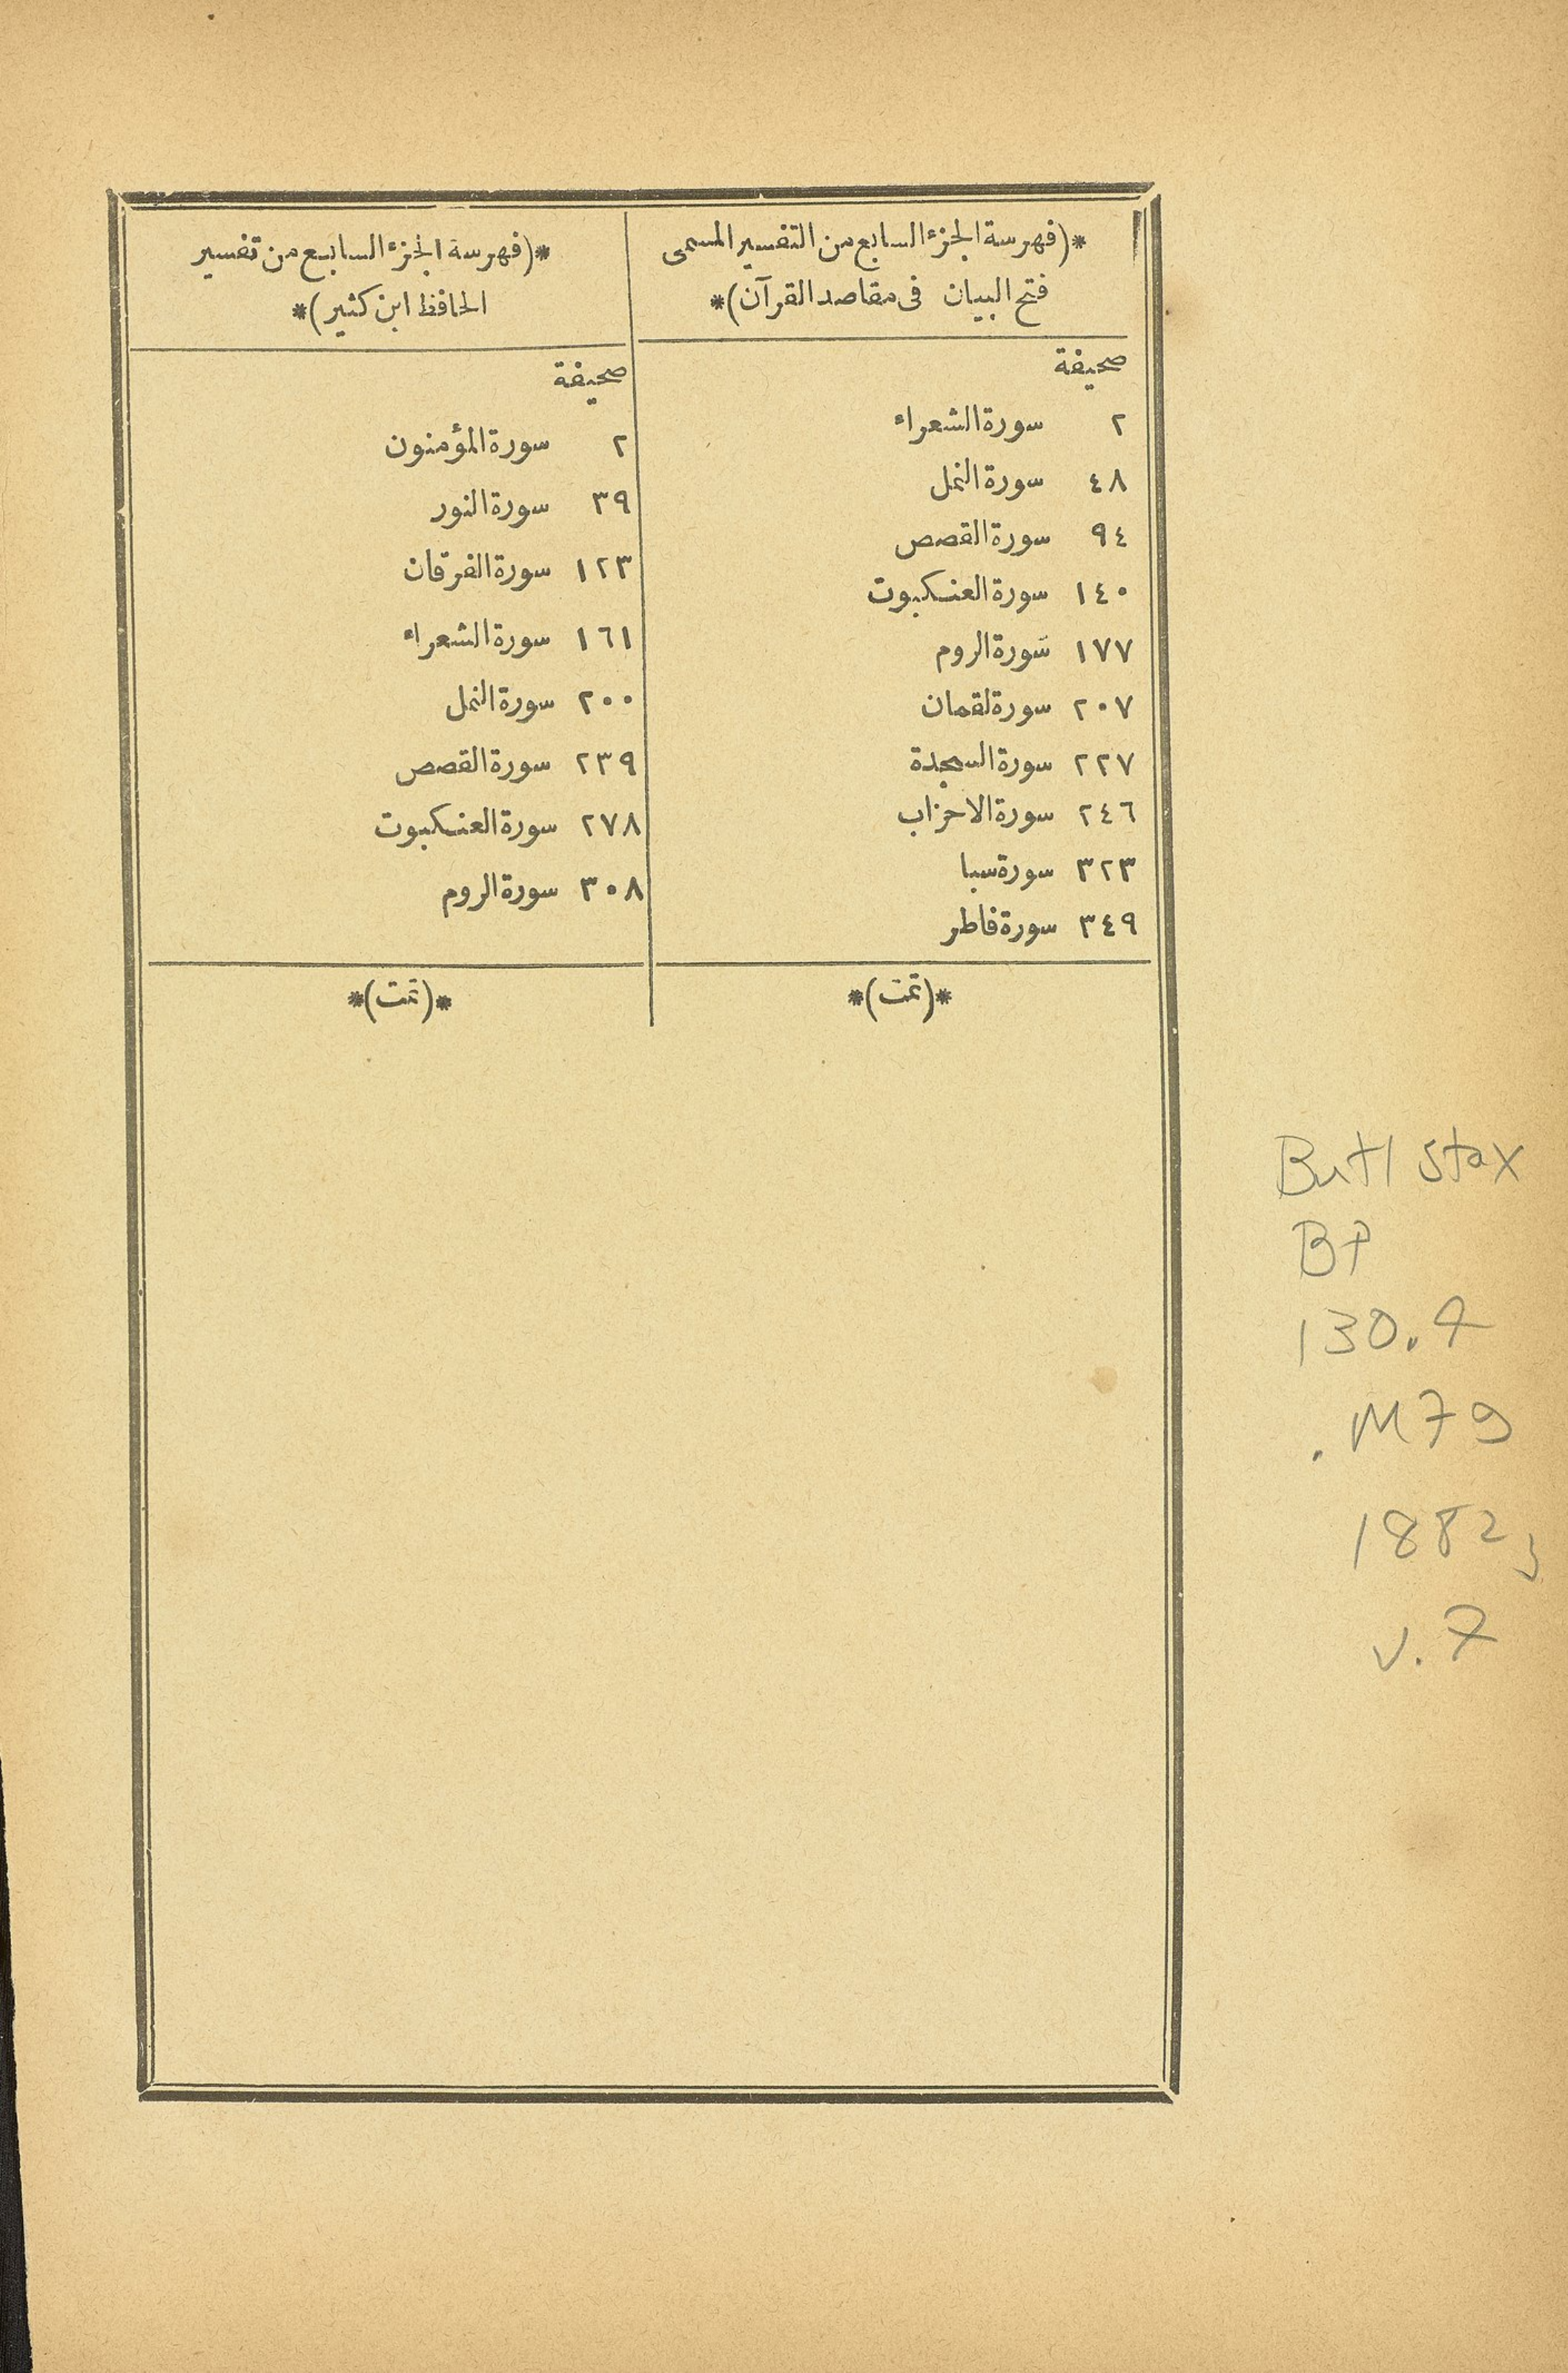 *(فهرسة الجزء السابع من التفسير المسمى
فتح البيان فى مقاصد القرآن)*
صحيفة
٢ سورة الشعراء
٤٨ سورة النمل
٩٤ سورة القصص
١٤٠ سورة العنكبوت
١٧٧ سورة الروم
٢٠٧ سورة لقمان
٢٢٧ سورة السجدة
٢٤٦ سورة الاحزاب
٣٢٣ سورة سبا
٣٤٩ سورة فاطر
*(تمت)*
*(فهرسة الجزء السابع من تفسير
الحافظ ابن كثير)*
صحيفة
٢ سورة المؤمنون
٣٩ سورة النور
١٢٣ سورة الفرقان
١٦١ سورة الشعراء
٢٠٠ سورة النمل
٢٣٩ سورة القصص
٢٧٨ سورة العنكبوت
٣٠٨ سورة الروم
*(تمت)*
Butl stax
BP
130.4
.M79
1882
v.7